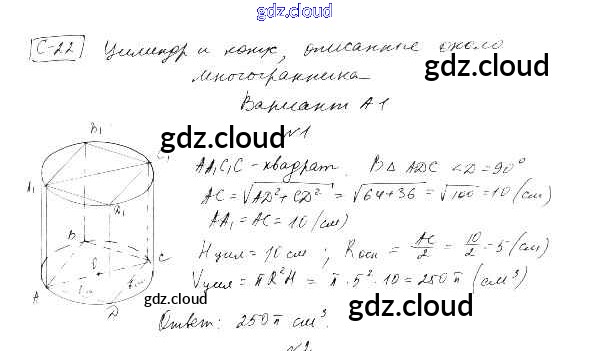 gdz.cloud
С-22 Цилиндр и конус, описанные около
многогранника
gdz.cloud
Вариант А1
gdz.cloud
№1
B₁
C₁
A₁
D₁
AA₁C₁C - квадрат. В Δ ADC ∠D = 90°
gdz.cloud
AC = √AD² + CD² = √64+36 = √100 = 10 (см)
AA₁ = AC = 10 (см)
B
C
A
D
Hцил = 10 см ; Rосн = AC/2 = 10/2 = 5 (см)
gdz.cloud
Vцил = πR²H = π · 5² · 10 = 250π (см³)
gdz.cloud
Ответ: 250π см³.
gdz.cloud
№2